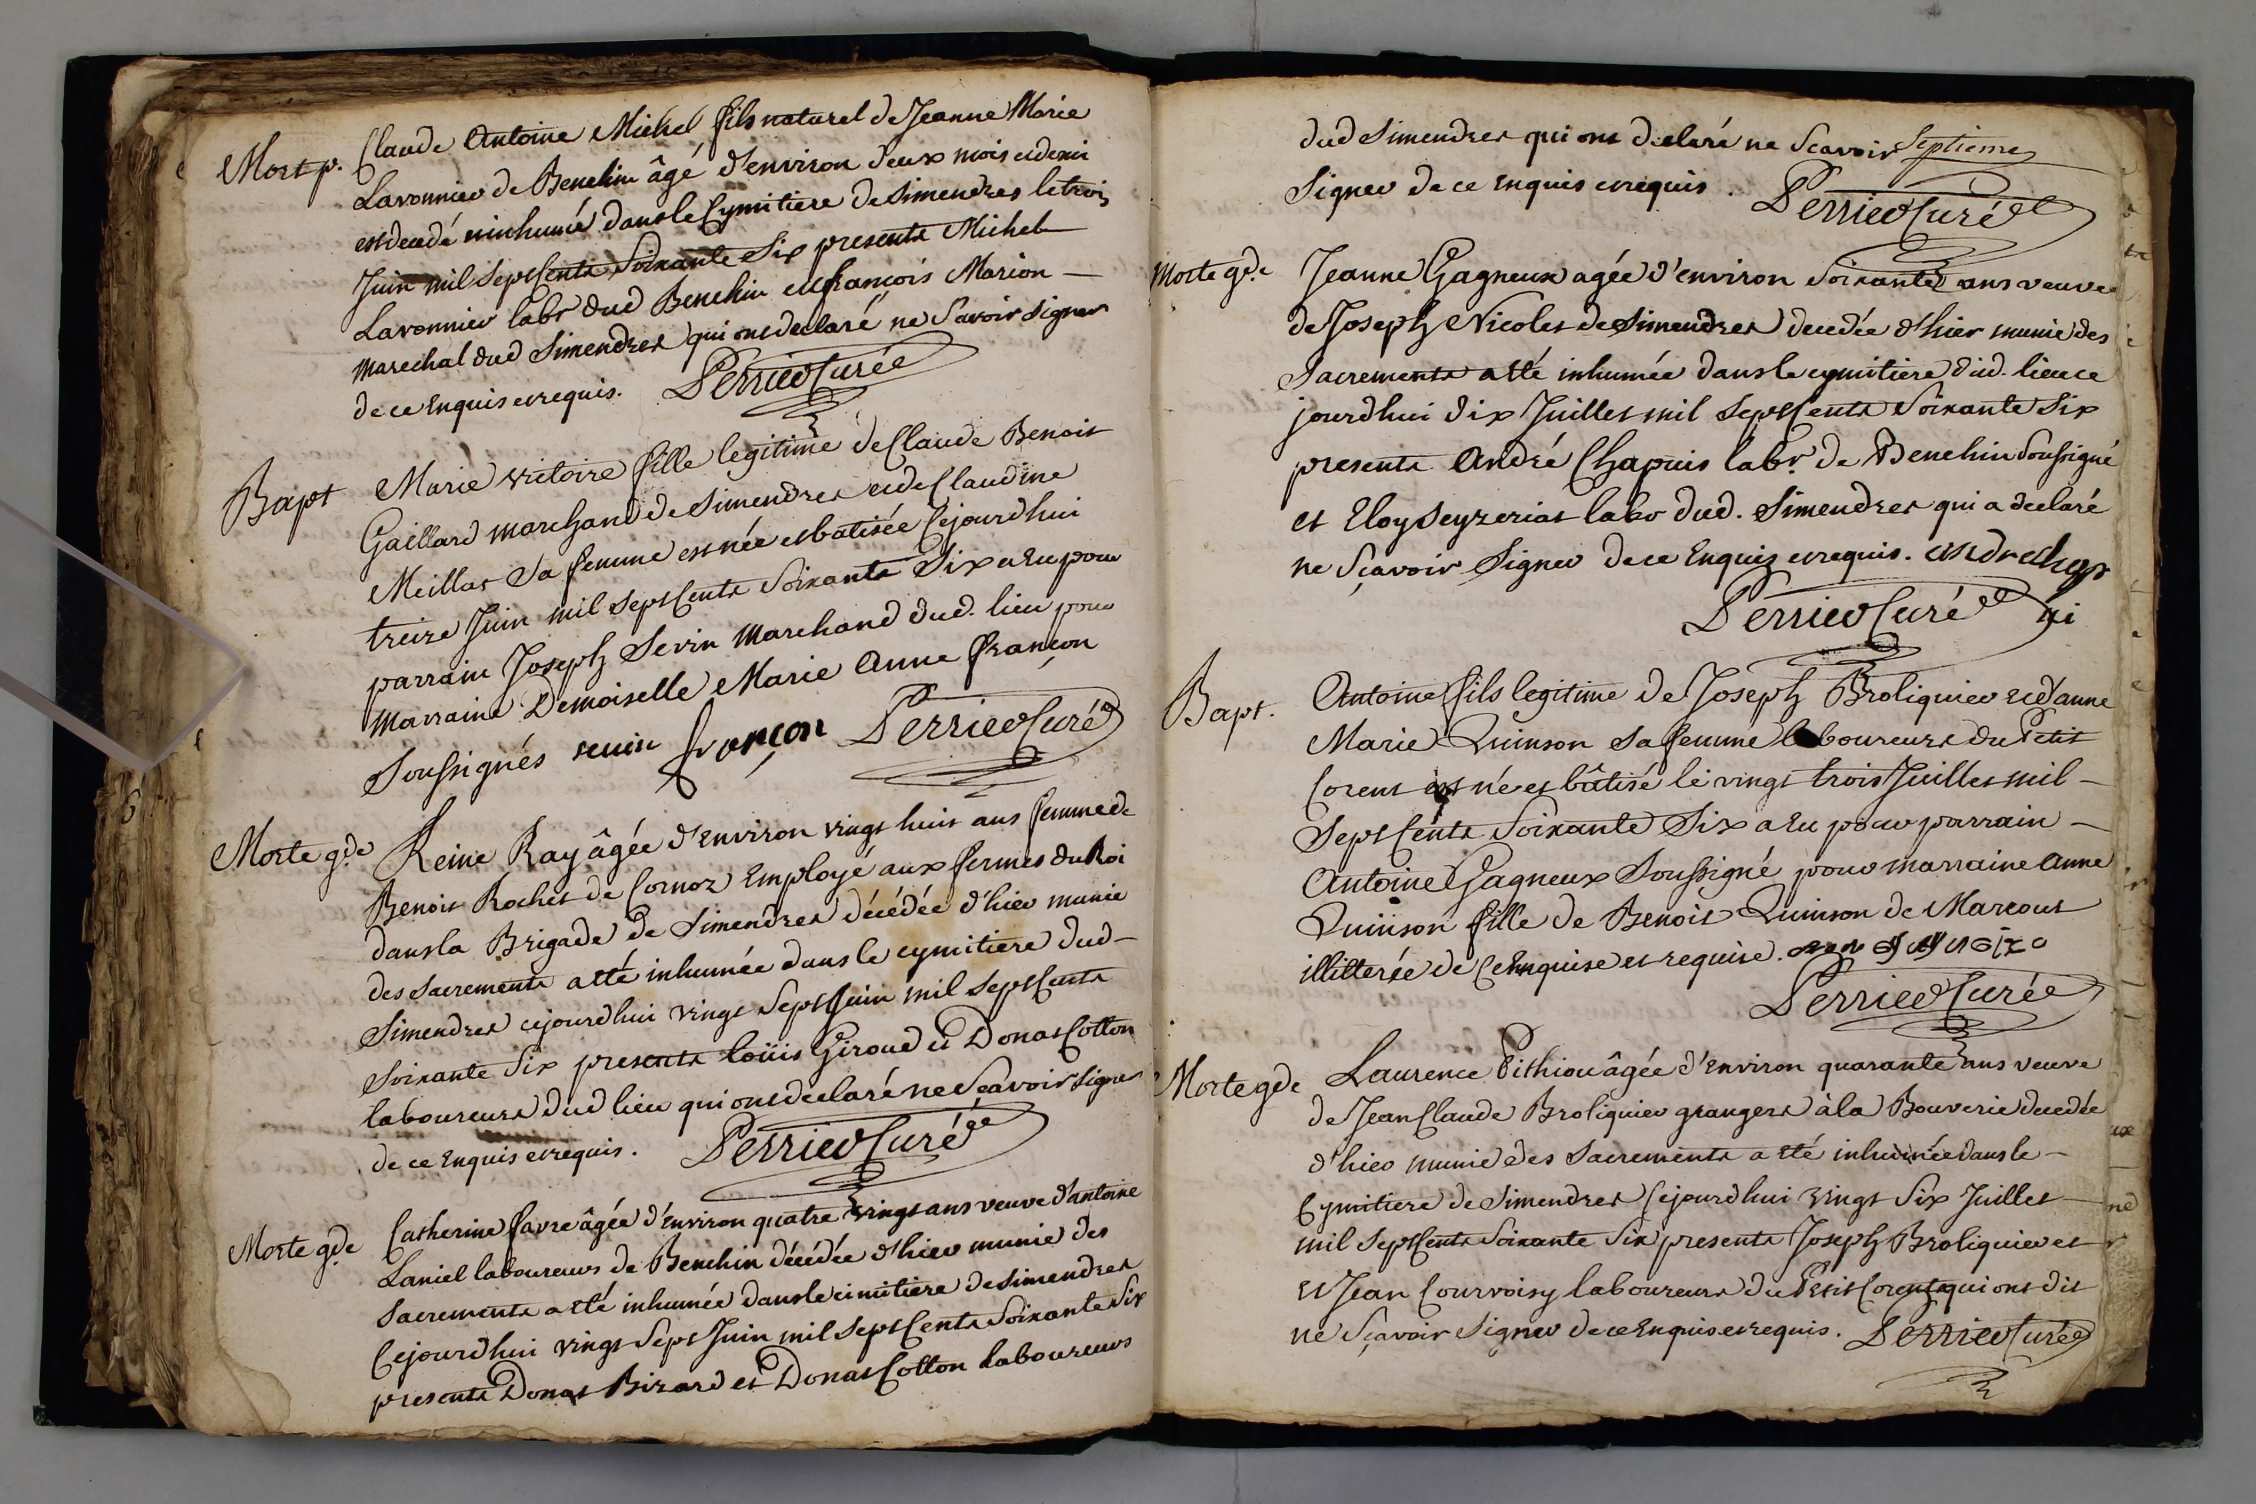 Mort p. Claude Antoine Michel fils naturel de Jeanne Marie
Lavonnier de Benchin âgé d'environ deux mois et demi
est decedé et inhumé dans le Cymitiere de Simendres le trois
Juin mil sept Cents Soixante Six presents Michel
Lavonnier labr dud Benchin et françois Marion
marechal dud Simendres qui ont declaré ne Savoir signer
de ce Enquis et requis. Perrier Curé
Bapt Marie victoire fille legitime de Claude Benoit
Gaillard marchand de Simendres et de Claudine
Meillat Sa femme est née et batisée Cejourdhui
treize Juin mil sept Cents Soixante Six a Eu pour
parrain Joseph Sevin marchand dud. lieu pour
marraine Demoiselle Marie Anne françon
Soussignés sevin françon Perrier Curé
Morte gde Reine Ray âgée d'environ vingt huit ans femme de
Benoit Rochet de Cornoz Employé aux fermes du Roi
dans la Brigade de Simendres décédée d'hier munie
des Sacrements a été inhumée dans le cymitiere dud
Simendres cejourdhui vingt Sept Juin mil Sept Cents
Soixante Six presents loüis Giroud et Donat Cotton
laboureurs dud lieu qui ont declaré ne Sçavoir signer
de ce Enquis et requis. Perrier Curé
Morte gde Catherine favre âgée d'environ quatre vingt ans veuve d'antoine
Laniel laboureur de Benchin décédée d'hier munie des
Sacrements a été inhumée dans le cimitiere de Simendres
Cejourdhui vingt Sept Juin mil Sept Cents Soixante Six
presents Donat Birard et Donat Cotton laboureurs
dud Simendres qui ont declaré ne Scavoir Septieme
Signer de ce enquis et requis. Perrier Curé
Morte gde Jeanne Gagneux agée d'environ Soixante ans veuve
de Joseph Nicolet de Simendres decedée d'hier munie des
Sacrements a été inhumée dans le cymitiere dud. lieu ce
jourdhui dix Juillet mil Sept Cents Soixante Six
presents André Chapuis labr. de Benchin Soussigné
et Eloy Seyzeriat labr dud. Simendres qui a declaré
ne Sçavoir Signer de ce Enquis et requis. andre chap
Perrier Curé ui
Bapt. Antoine fils legitime de Joseph Broliquier et d'anne
Marie Quinson Sa femme laboureurs du Petit
Corent est né et bâtisé le vingt trois Juillet mil
Sept Cents Soixante Six a Eu pour parrain
Antoine Gagneux Soussigné pour marraine Anne
Quinson fille de Benoit Quinson de Marcout
illitterée de Ce Enquise et requise.
Perrier Curé
Morte gde Laurence Pithiou âgée d'environ quarante ans veuve
de Jean Claude Broliquier grangers à la Bouverie decedée
d'hier munie des Sacrements a été inhumée dans le
Cymitiere de Simendres Cejourdhui vingt Six Juillet
mil Sept Cents Soixante Six presents Joseph Broliquier et
et Jean Courvoisy laboureurs du Petit Corent qui ont dit
ne Sçavoir Signer de ce Enquis et requis. Perrier Curé